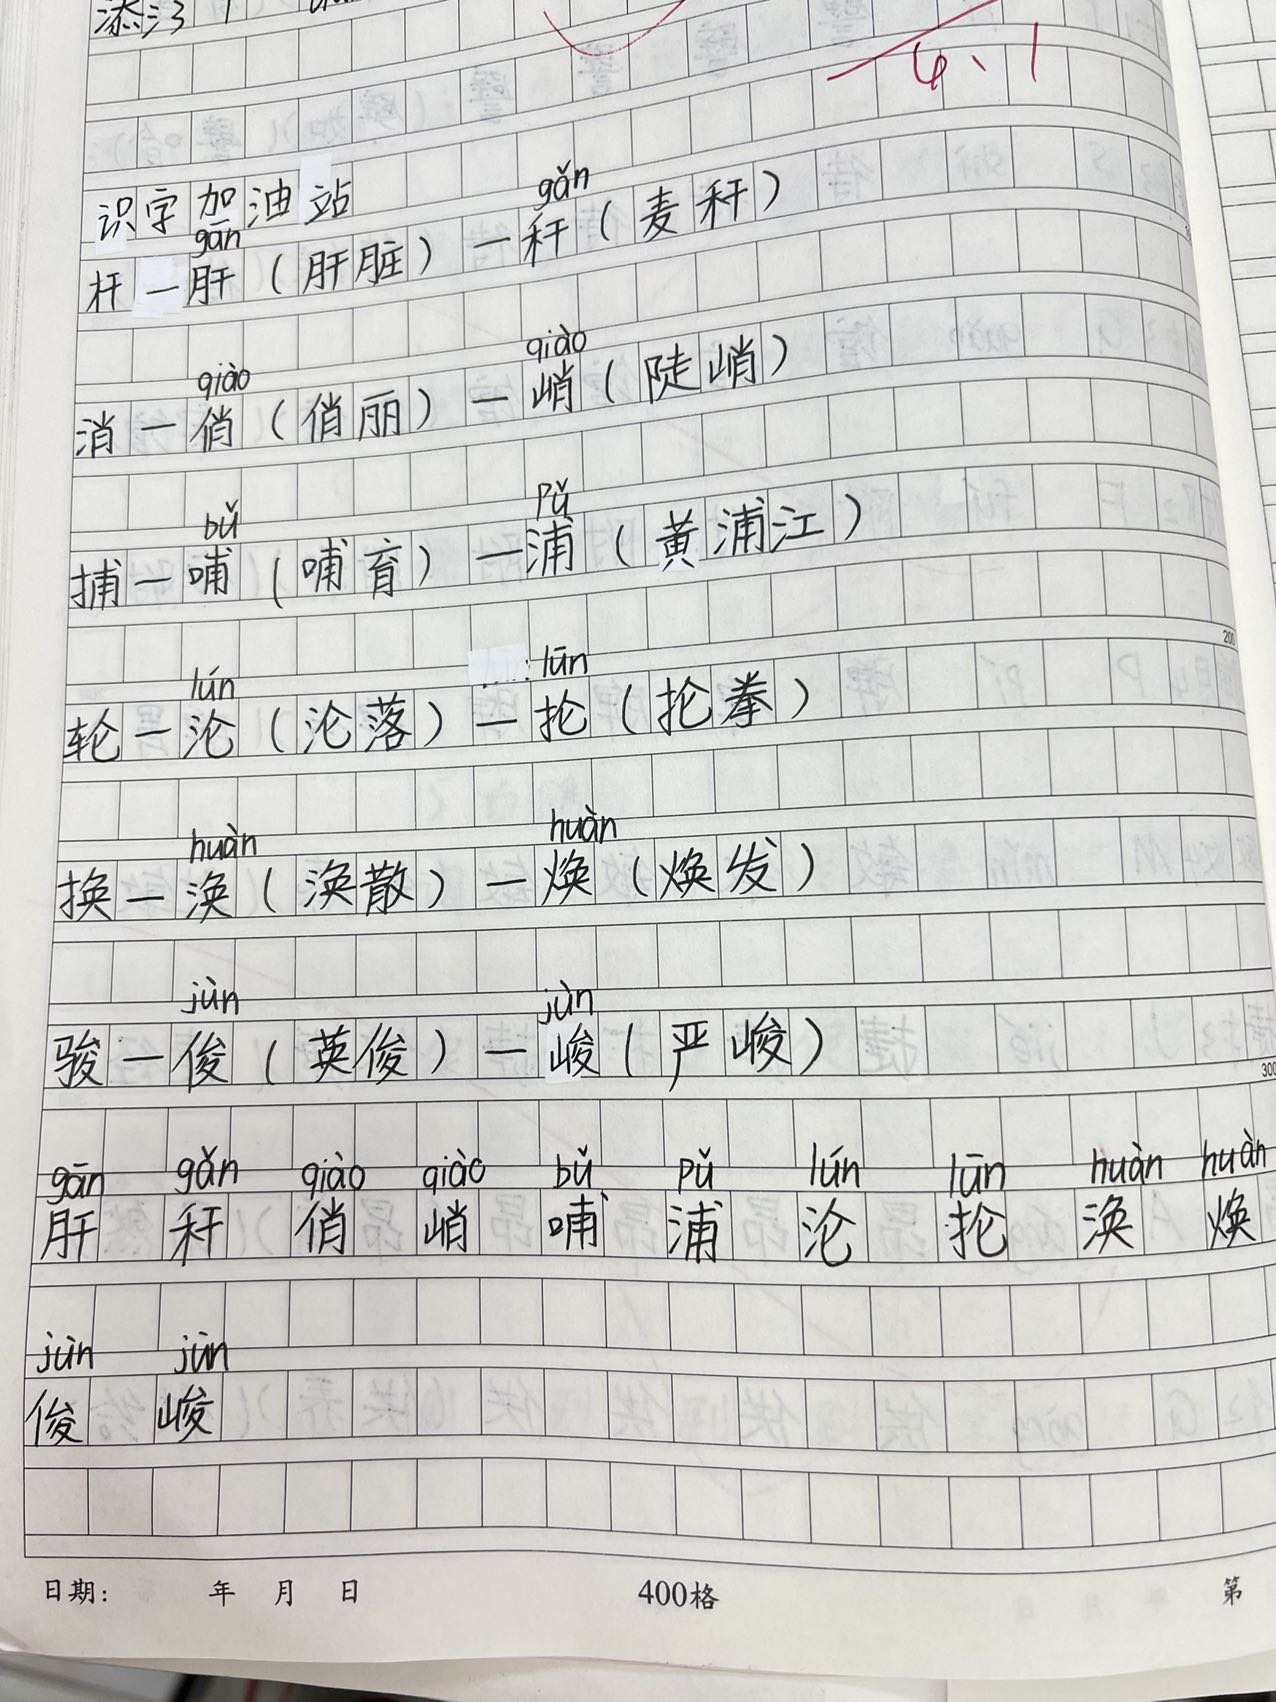 添
6、1
识字加油站
gān gǎn
杆—肝（肝脏）—秆（麦秆）
qiào qiào
消—俏（俏丽）—峭（陡峭）
bǔ pǔ
捕—哺（哺育）—浦（黄浦江）
lún lūn
轮—沦（沦落）—抡（抡拳）
huàn huàn
换—涣（涣散）—焕（焕发）
jùn jùn
骏—俊（英俊）—峻（严峻）
300
gān gǎn qiào qiào bǔ pǔ lún lūn huàn huàn
肝 秆 俏 峭 哺 浦 沦 抡 涣 焕
jùn jùn
俊 峻
日期： 年 月 日 400格 第